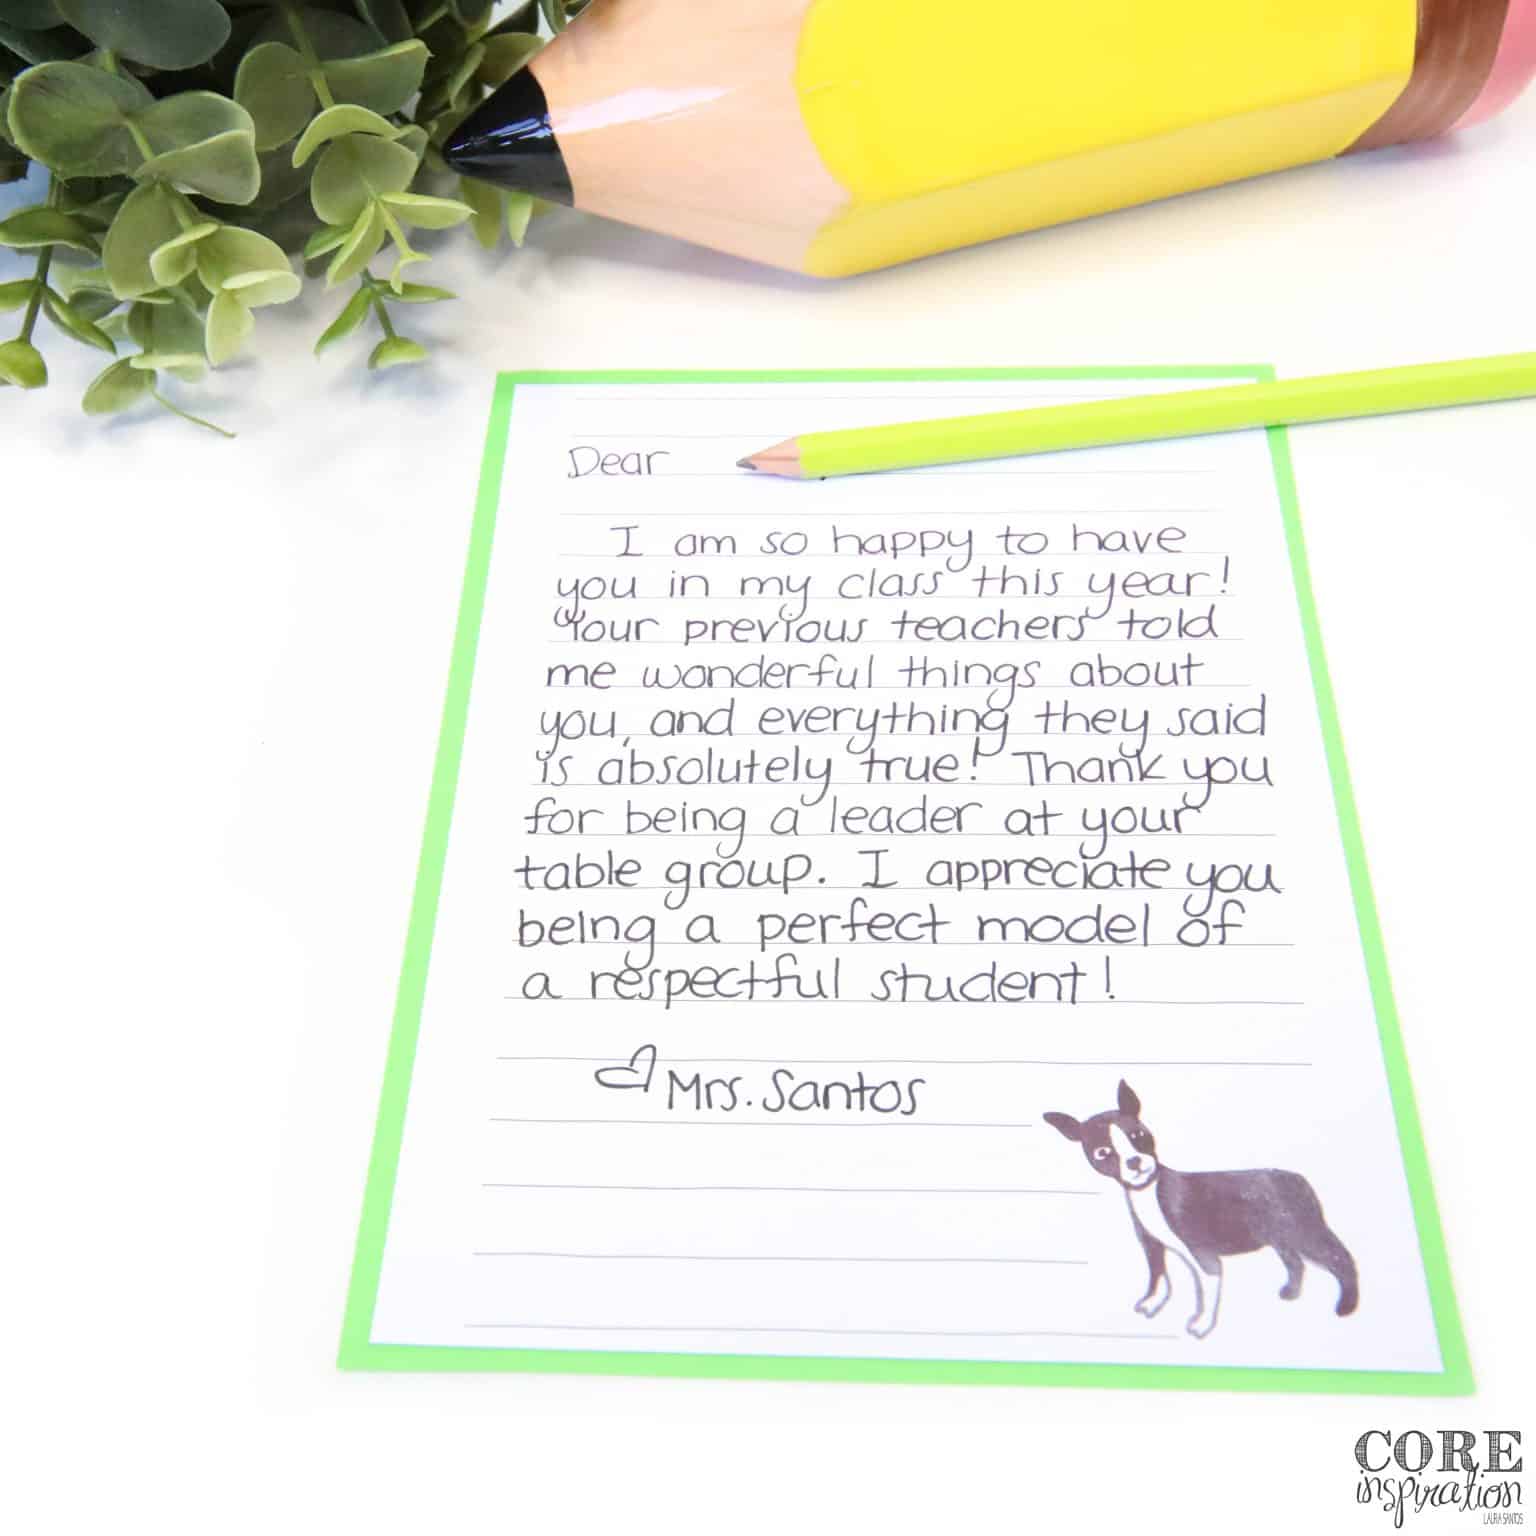 Dear
I am so happy to have
you in my class this year!
Your previous teachers told
me wonderful things about
you, and everything they said
is absolutely true! Thank you
for being a leader at your
table group. I appreciate you
being a perfect model of
a respectful student!
Mrs. Santos
CORE
inspiration
LAURA SANTOS